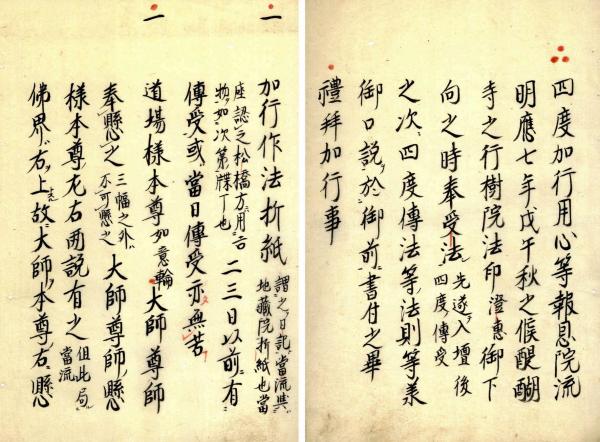 四度加行用心等報息院流
明應七年戊午秋之候醍醐
寺之行樹院法印澄惠御下
向之時奉受法 先遂入壇後 四度傳受
之次四度傳法等法則等蒙
御口説於御前書付之畢
禮拜加行事
一 加行作法折紙 謂之日記當流與 地藏院折紙也當
座認之松橋方用言 物如次第牒丁也 二三日以前有
傳受或當日傳受亦無苦
一 道場樣本尊如意輪大師尊師
奉懸之 三幅之外 不可懸之 大師尊師懸
樣本尊左右兩説有之 但此局 當流
佛界右上故大師本尊右懸